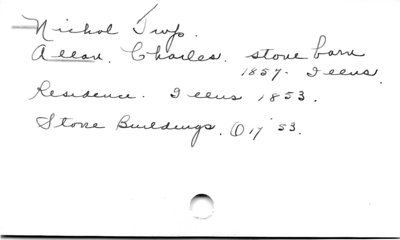 Nichol Twp.
Allan, Charles. stone barn
1857. Illus.
Residence. Illus 1853.
Stone Buildings. O 17 '53.